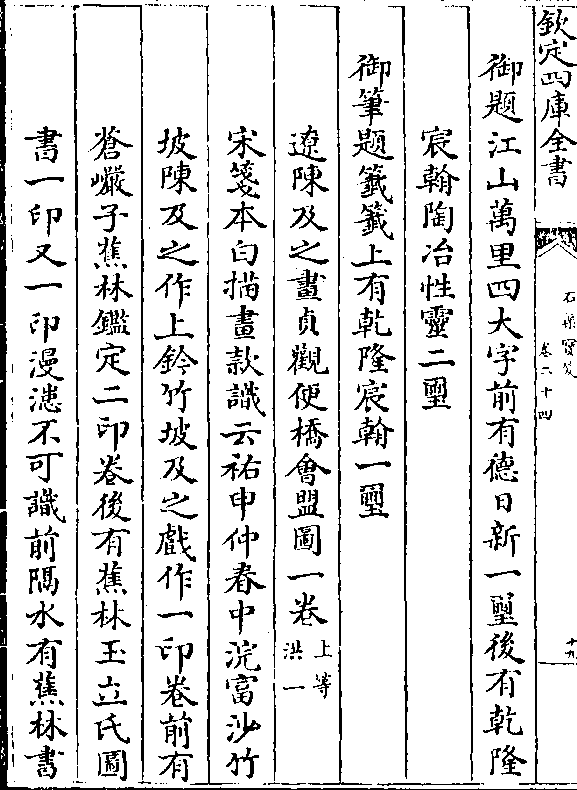 欽定四庫全書
石渠寳笈
卷三十四
十九
御題江山萬里四大字前有德日新一璽後有乾隆
宸翰陶冶性靈二璽
御筆題籤籤上有乾隆宸翰一璽
遼陳及之畫貞觀便橋會盟圖一卷 上等洪一
宋箋本白描畫款識云祐申仲春中浣富沙竹
坡陳及之作上鈐竹坡及之戲作一印卷前有
蒼巖子蕉林鑑定二印卷後有蕉林玉立氏圖
書一印又一印漫漶不可識前隔水有蕉林書